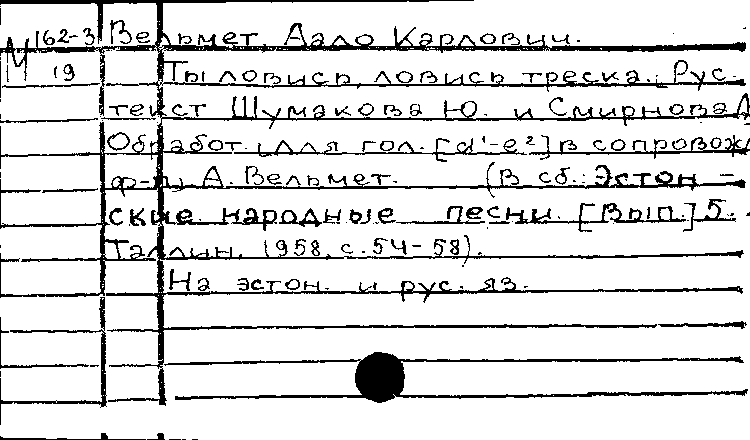 М 162-3 Вельмет, Аало Карлович.
19 Ты ловись, ловись треска. Рус.
текст Шумакова Ю. и Смирнова Д
Обработ. для гол. [d¹-e²] в сопровож
ф-п. А. Вельмет. (В сб.: Эстон-
ские народные песни. [Вып.] 5.
Таллин, 1958, с. 54-58).
На эстон. и рус. яз.